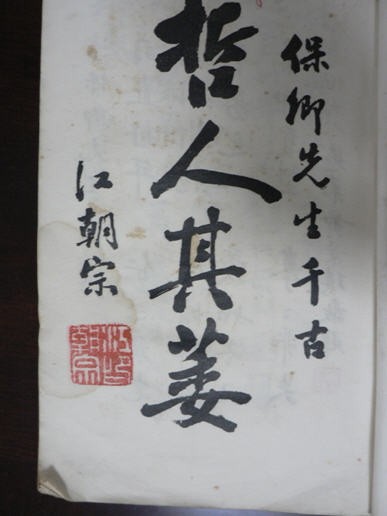 保卿先生千古
哲人其萎
江朝宗